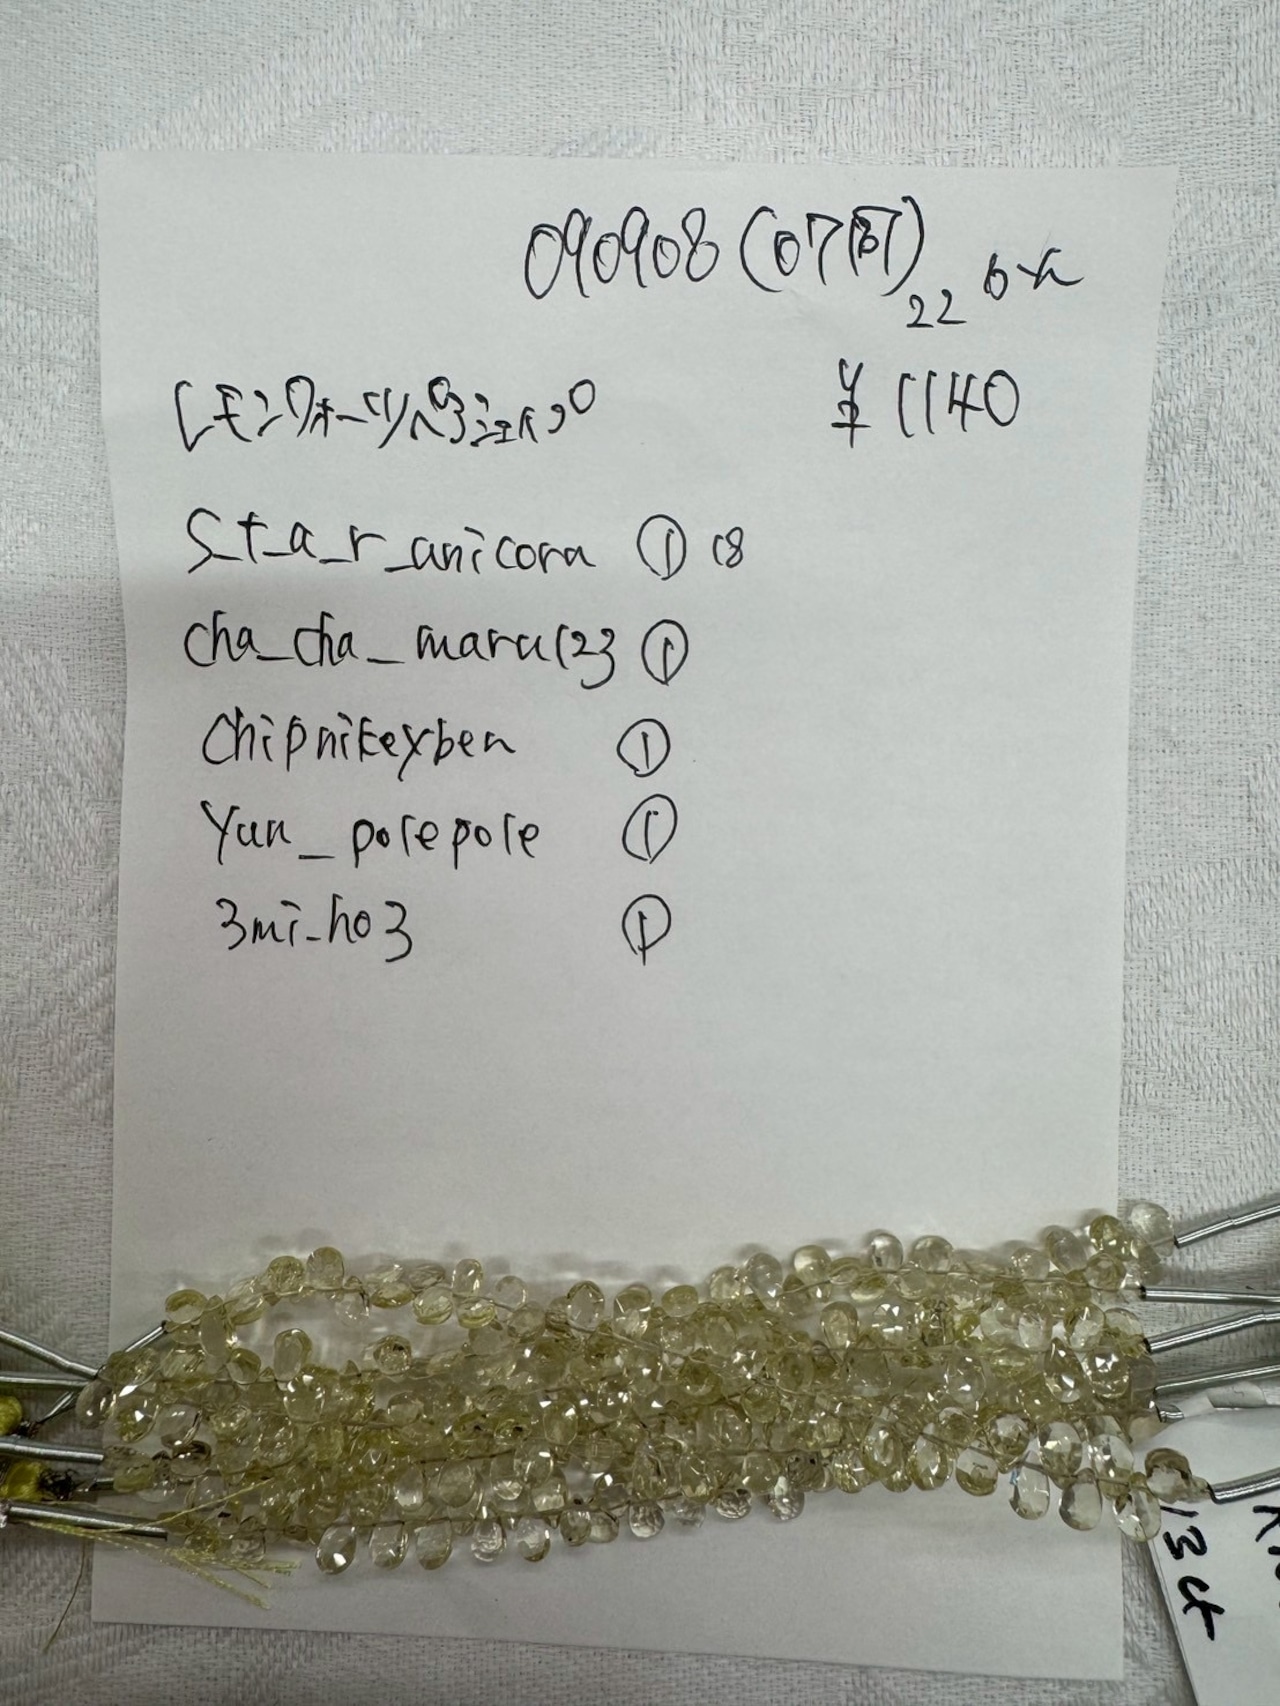 090908 (07町)22 6本
レモンクォーツペアシェイプ ¥1140
S_t_a_r_anicora ① 18
cha_cha_maru123 ①
Chipnikeyben ①
Yun_polepole ①
3mi_ho3 ①
13ct